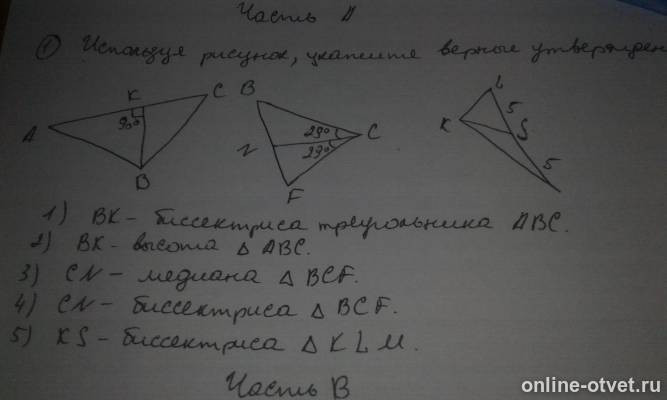 Часть А
1) Используя рисунок, укажите верные утвержден
K C B L
A 90° 29° C K 5 S
N 29° 5
B F
1) BK - биссектриса треугольника ABC.
2) BK - высота △ ABC.
3) CN - медиана △ BCF.
4) CN - биссектриса △ BCF.
5) KS - биссектриса △ KLM.
Часть B
online-otvet.ru